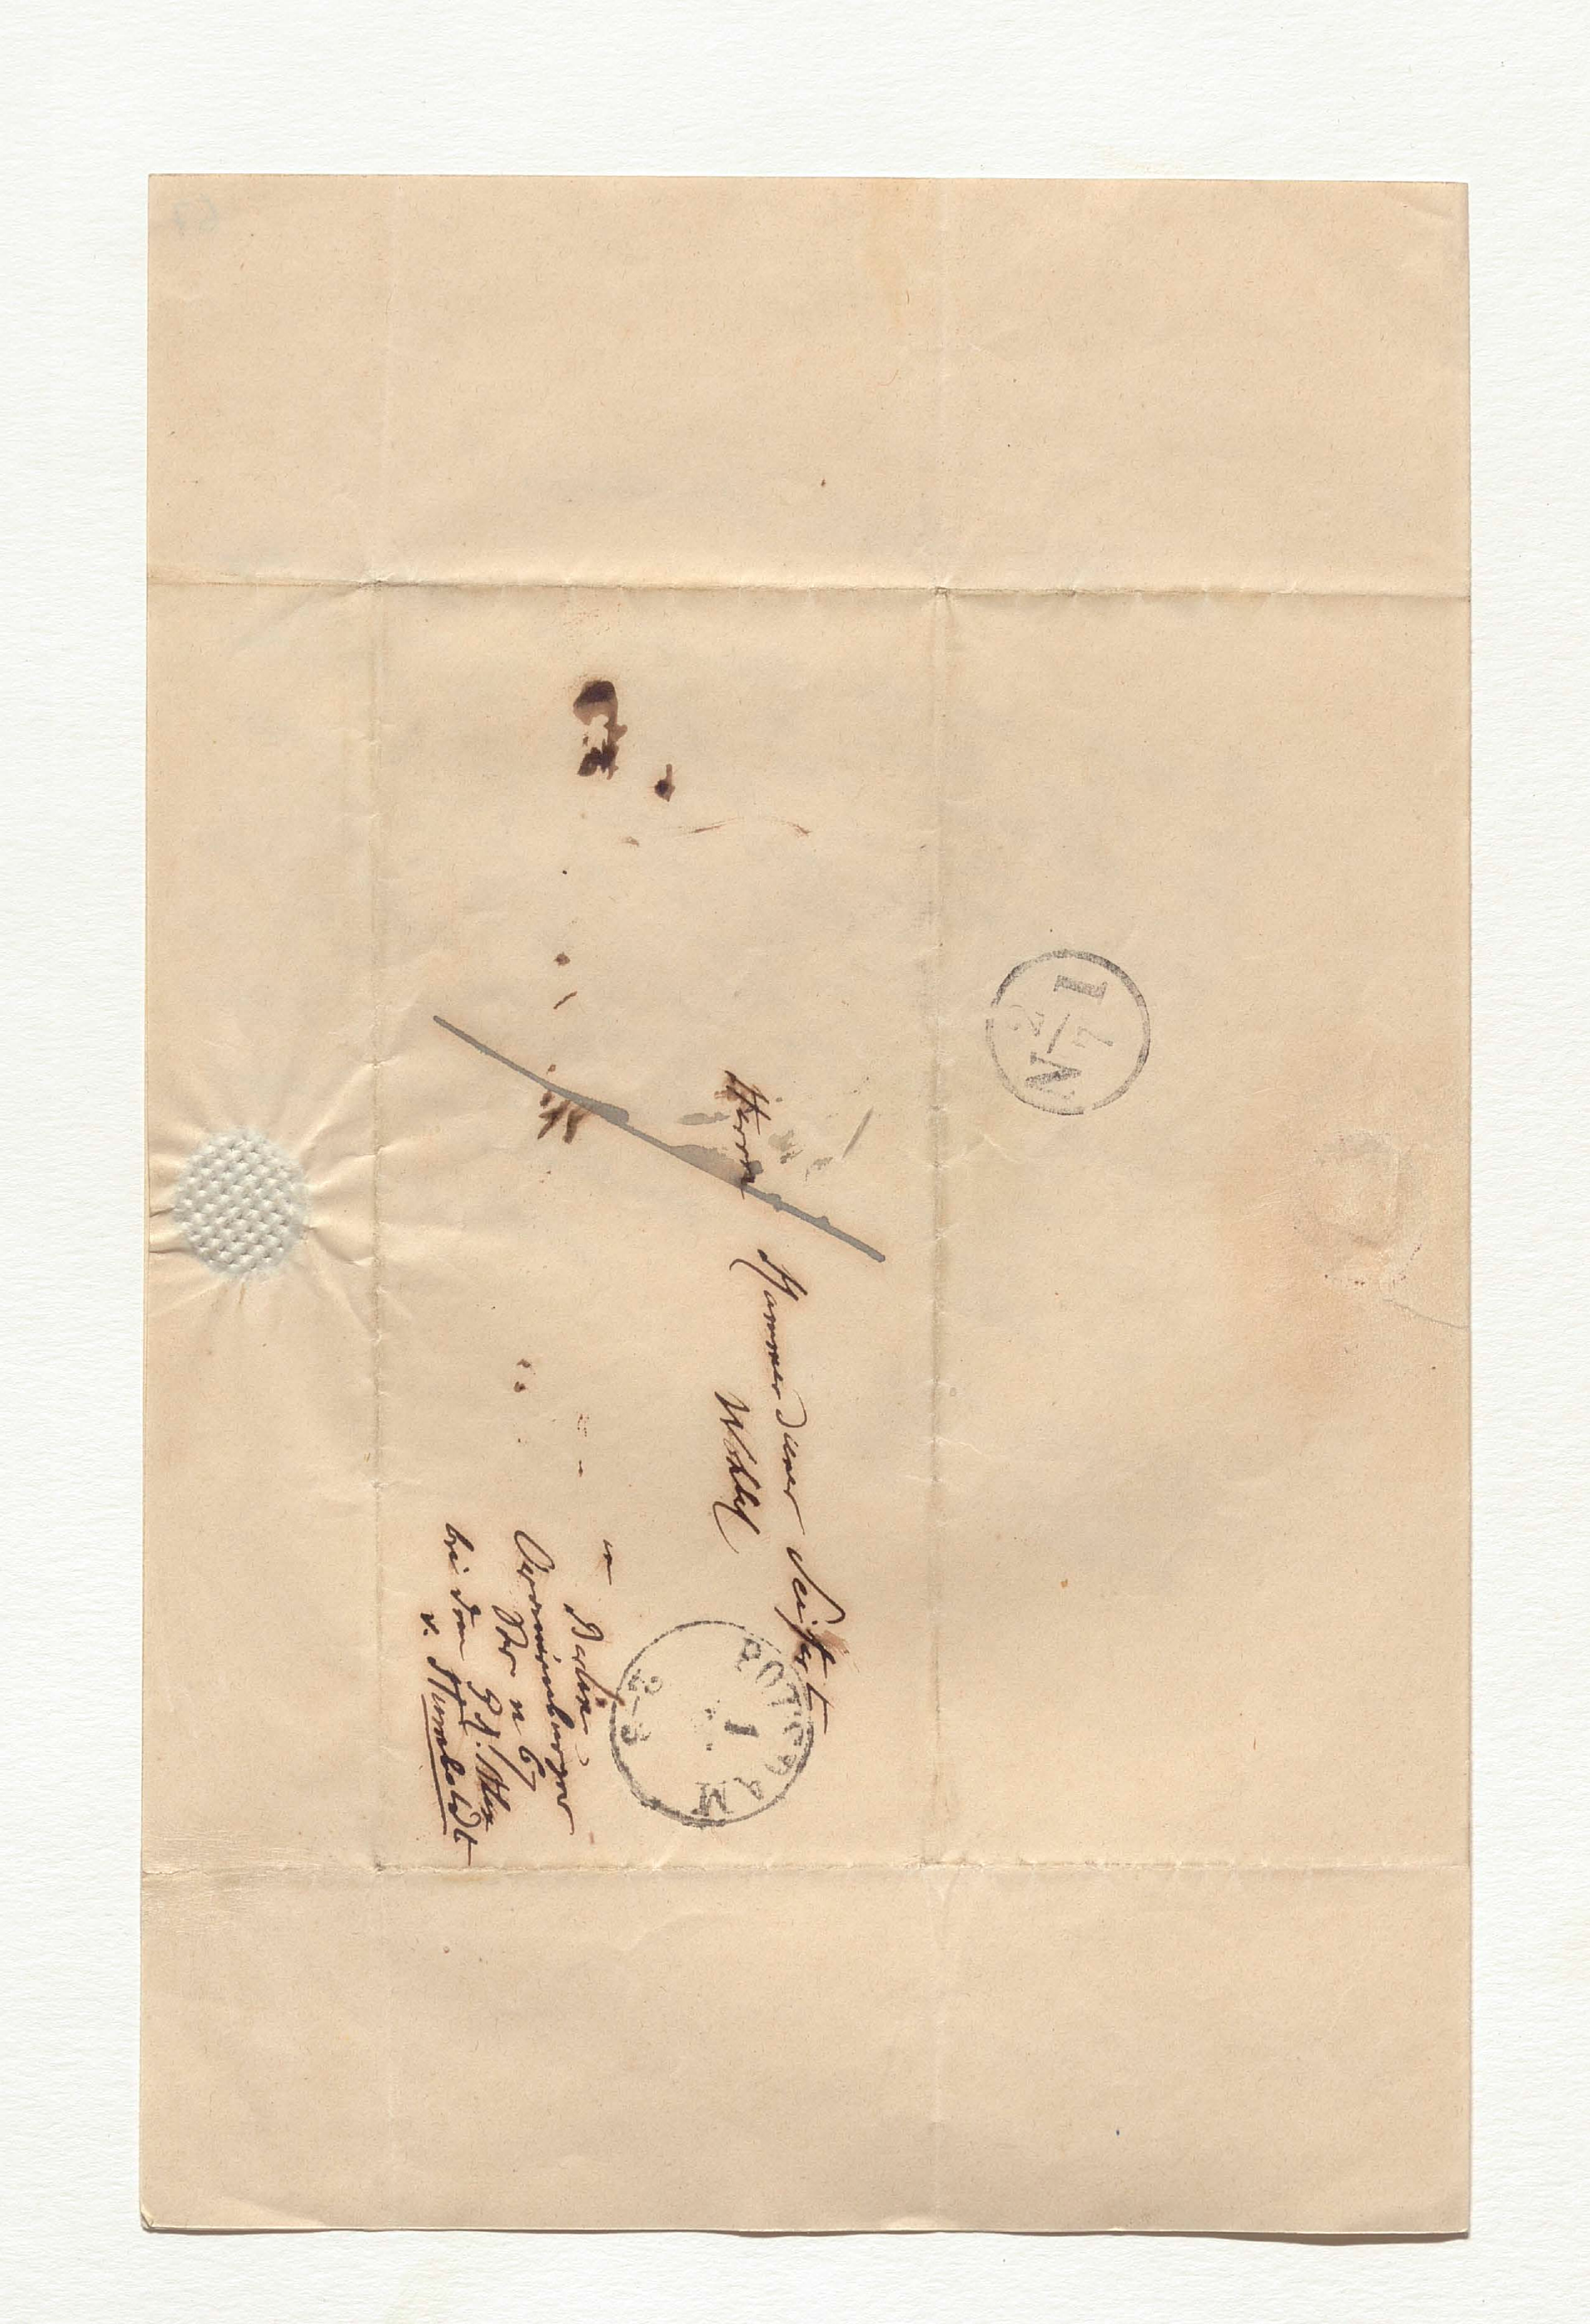 Herrn Kammerdiener Seifert
Wohlg
in Berlin
Oranienburger
Str n 67
bei dem
v. Humboldt
POTSDAM
1
2-3
N 2/7 I
67